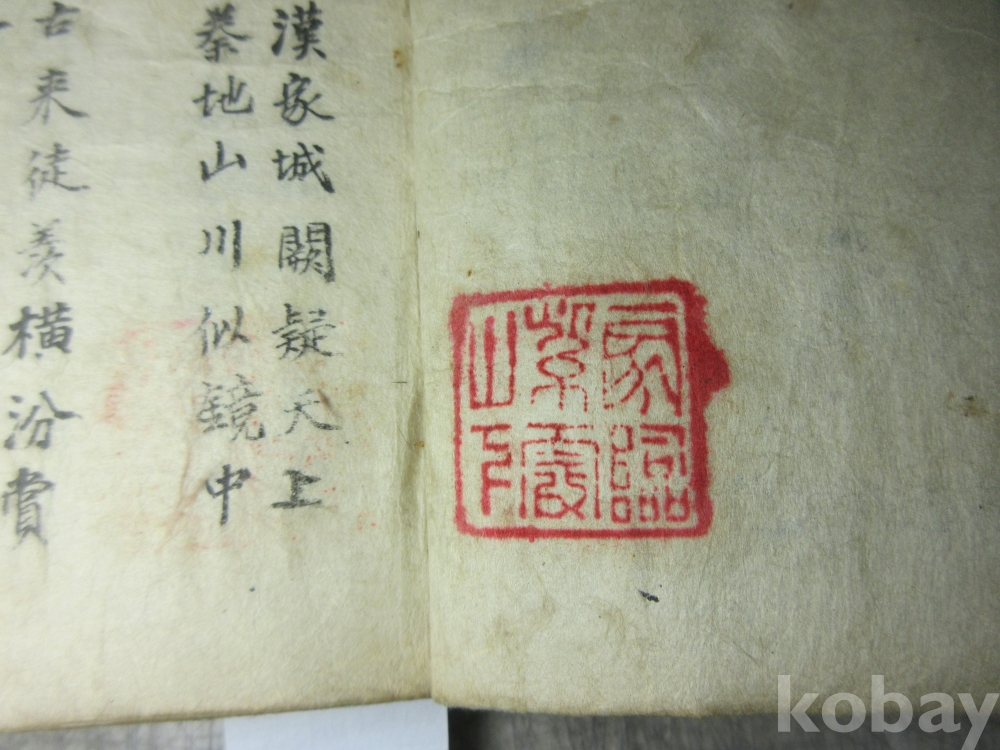 家臨
紫霞
山下
漢家城闕疑天上
秦地山川似鏡中
古来徒羨横汾賞
kobay